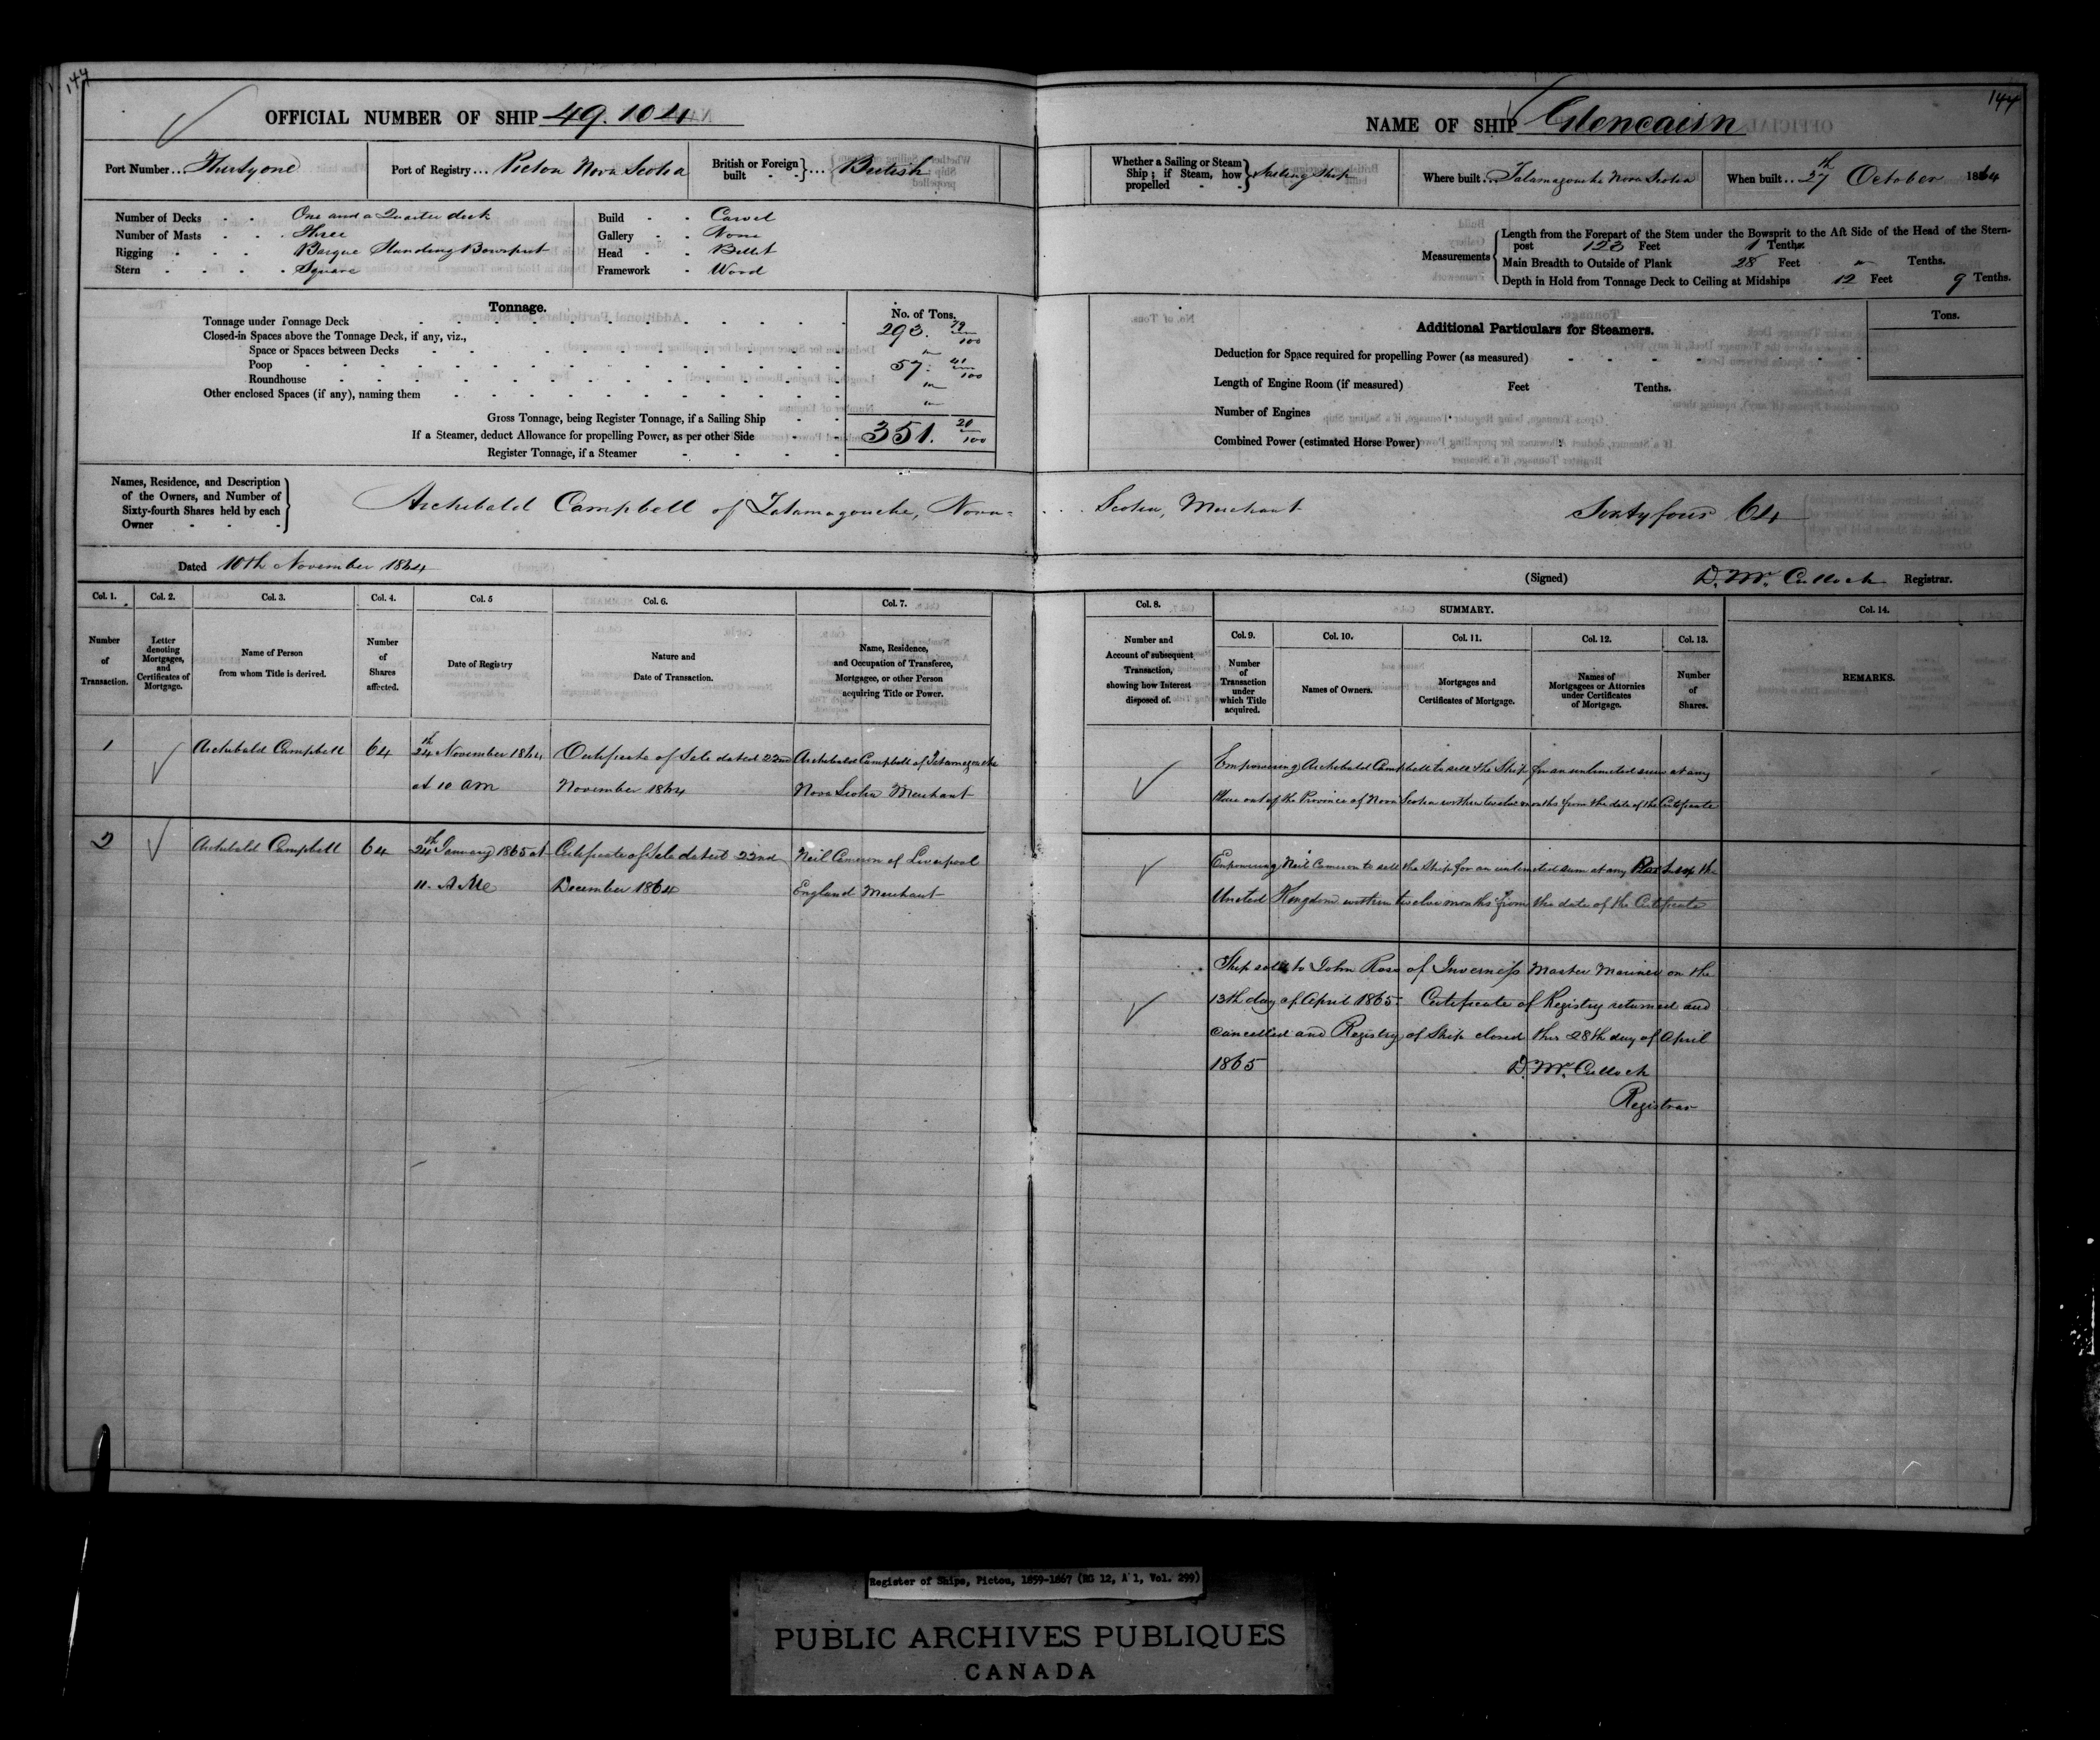 144
OFFICIAL NUMBER OF SHIP 49.104
Port Number... Thirtyone
Port of Registry... Pictou Nova Scotia
British or Foreign built - - } .... British
Number of Decks - - One and a Quarter deck
Number of Masts - - Three
Rigging - - - Barque Standing Bowsprit
Stern - - - - Square
Build - - Carvel
Gallery - - None
Head - - Billet
Framework - Wood
Tonnage.
No. of Tons.
Tonnage under Tonnage Deck 293. 79/100
Closed-in Spaces above the Tonnage Deck, if any, viz.,
Space or Spaces between Decks "
Poop 57. 41/100
Roundhouse "
Other enclosed Spaces (if any), naming them "
Gross Tonnage, being Register Tonnage, if a Sailing Ship
If a Steamer, deduct Allowance for propelling Power, as per other Side 351. 20/100
Register Tonnage, if a Steamer
Names, Residence, and Description
of the Owners, and Number of
Sixty-fourth Shares held by each
Owner - - -
Archibald Campbell of Tatamagouche, Nova-
Dated 10th November 1864
Col. 1. Number of Transaction.
Col. 2. Letter denoting Mortgages, and Certificates of Mortgage.
Col. 3. Name of Person from whom Title is derived.
Col. 4. Number of Shares affected.
Col. 5 Date of Registry
Col. 6. Nature and Date of Transaction.
Col. 7. Name, Residence, and Occupation of Transferee, Mortgagee, or other Person acquiring Title or Power.
1 Archibald Campbell 64 24th November 1864 Certificate of Sale dated 22nd Archibald Campbell of Tatamagouche
at 10 am November 1864 Nova Scotia Merchant
2 Archibald Campbell 64 24th January 1865 at Certificate of Sale dated 22nd Neil Cameron of Liverpool
11. A Me December 1864 England Merchant
144
NAME OF SHIP Glencairn
Whether a Sailing or Steam Ship; if Steam, how propelled - - } Sailing Ship
Where built... Tatamagouche Nova Scotia
When built... 27th October 1864
Measurements
Length from the Forepart of the Stem under the Bowsprit to the Aft Side of the Head of the Stern-
post 123 Feet 1 Tenths.
Main Breadth to Outside of Plank 28 Feet " Tenths.
Depth in Hold from Tonnage Deck to Ceiling at Midships 12 Feet 9 Tenths.
Additional Particulars for Steamers.
Tons.
Deduction for Space required for propelling Power (as measured)
Length of Engine Room (if measured) Feet Tenths.
Number of Engines
Combined Power (estimated Horse Power)
Scotia, Merchant Sixty four 64
(Signed) D. Mc. Culloch Registrar.
Col. 8. Number and Account of subsequent Transaction, showing how Interest disposed of.
SUMMARY.
Col. 9. Number of Transaction under which Title acquired.
Col. 10. Names of Owners.
Col. 11. Mortgages and Certificates of Mortgage.
Col. 12. Names of Mortgagees or Attornies under Certificates of Mortgage.
Col. 13. Number of Shares.
Col. 14. REMARKS.
Empowering Archibald Campbell to sell the Ship for an unlimited sum at any
Place out of the Province of Nova Scotia within twelve months from the date of the Certificate
Empowering Neil Cameron to sell the Ship for an unlimited sum at any Place in the
United Kingdom within twelve months from the date of the Certificate
Ship sold to John Ross of Inverness Master Mariner on the
13th day of April 1865. Certificate of Registry returned and
cancelled and Registry of Ship closed this 28th day of April
1865 D. Mc. Culloch
Registrar
Register of Ships, Pictou, 1859-1867 (RG 12, A 1, Vol. 299)
PUBLIC ARCHIVES PUBLIQUES
CANADA